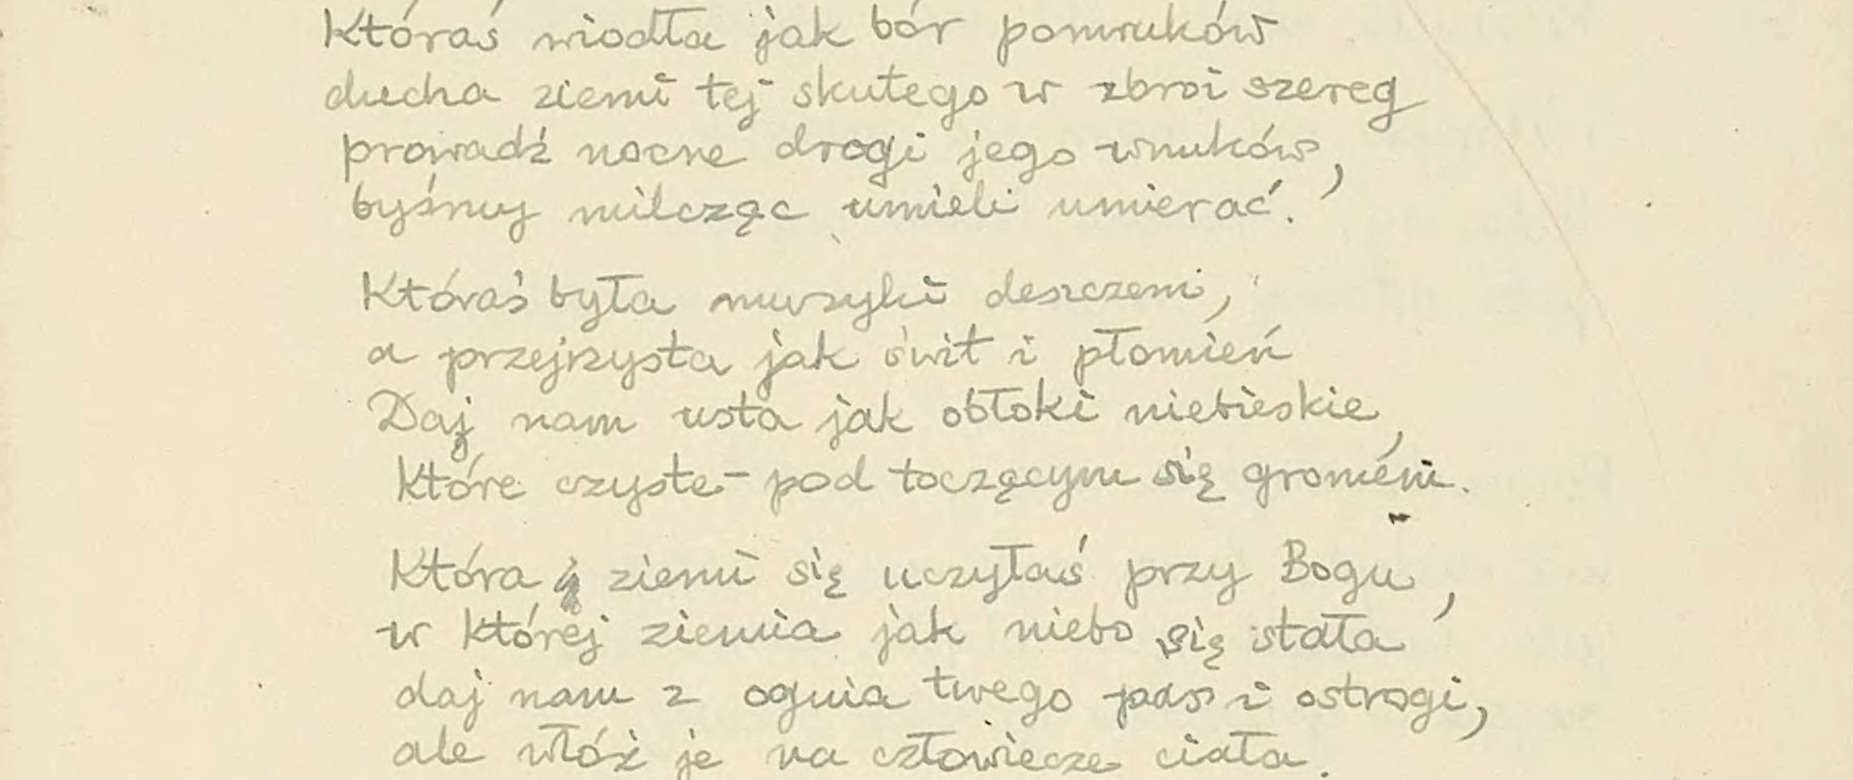 Któraś wiodła jak bór pomruków
ducha ziemi tej skutego w zbroi szereg
prowadź nocne drogi jego wnuków,
byśmy milcząc umieli umierać.
Któraś była muzyki deszczem,
a przejrzysta jak świt i płomień
Daj nam usta jak obłoki niebieskie,
które czyste - pod toczącym się gromem.
Która ziemi się uczyłaś przy Bogu,
w której ziemia jak niebo się stała
daj nam z ognia twego pas i ostrogi,
ale włóż je na człowiecze ciała.